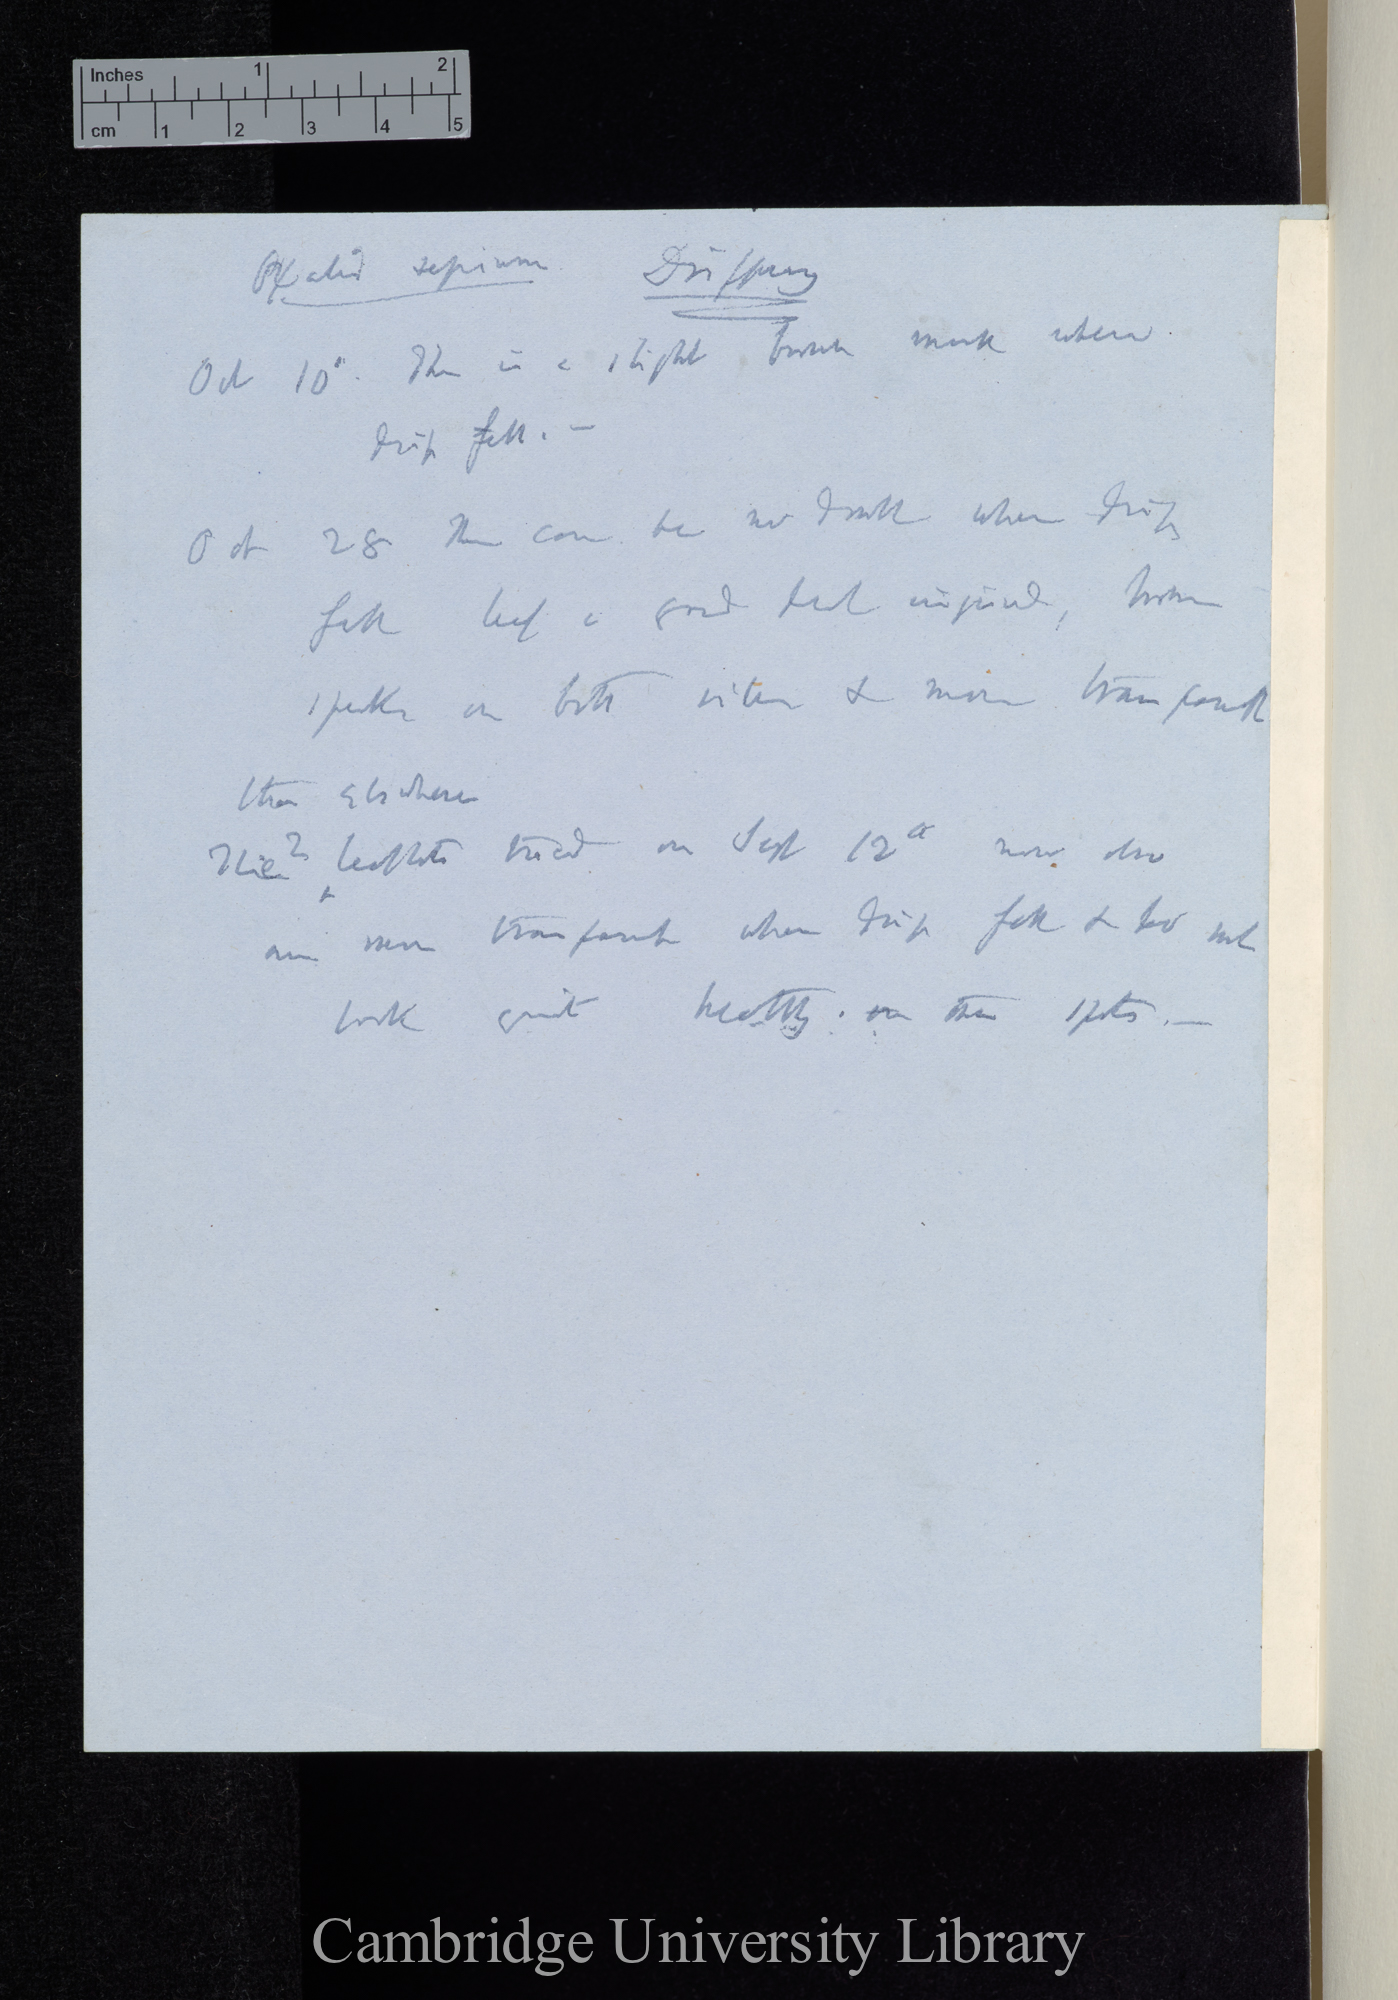 Inches 1 2
cm 1 2 3 4 5
Oxalis sepium Dripping
Oct 10th. There is a slight brown mark where
drip fell. —
Oct 28 There can be no doubt where drip
fell leaf is a good deal injured, brown
specks on both sides & more transparent
than elsewhere
leaflets tried on Sept 12th now also
are more transparent where drip fell & do not
look quite healthy. on these spots. —
Cambridge University Library